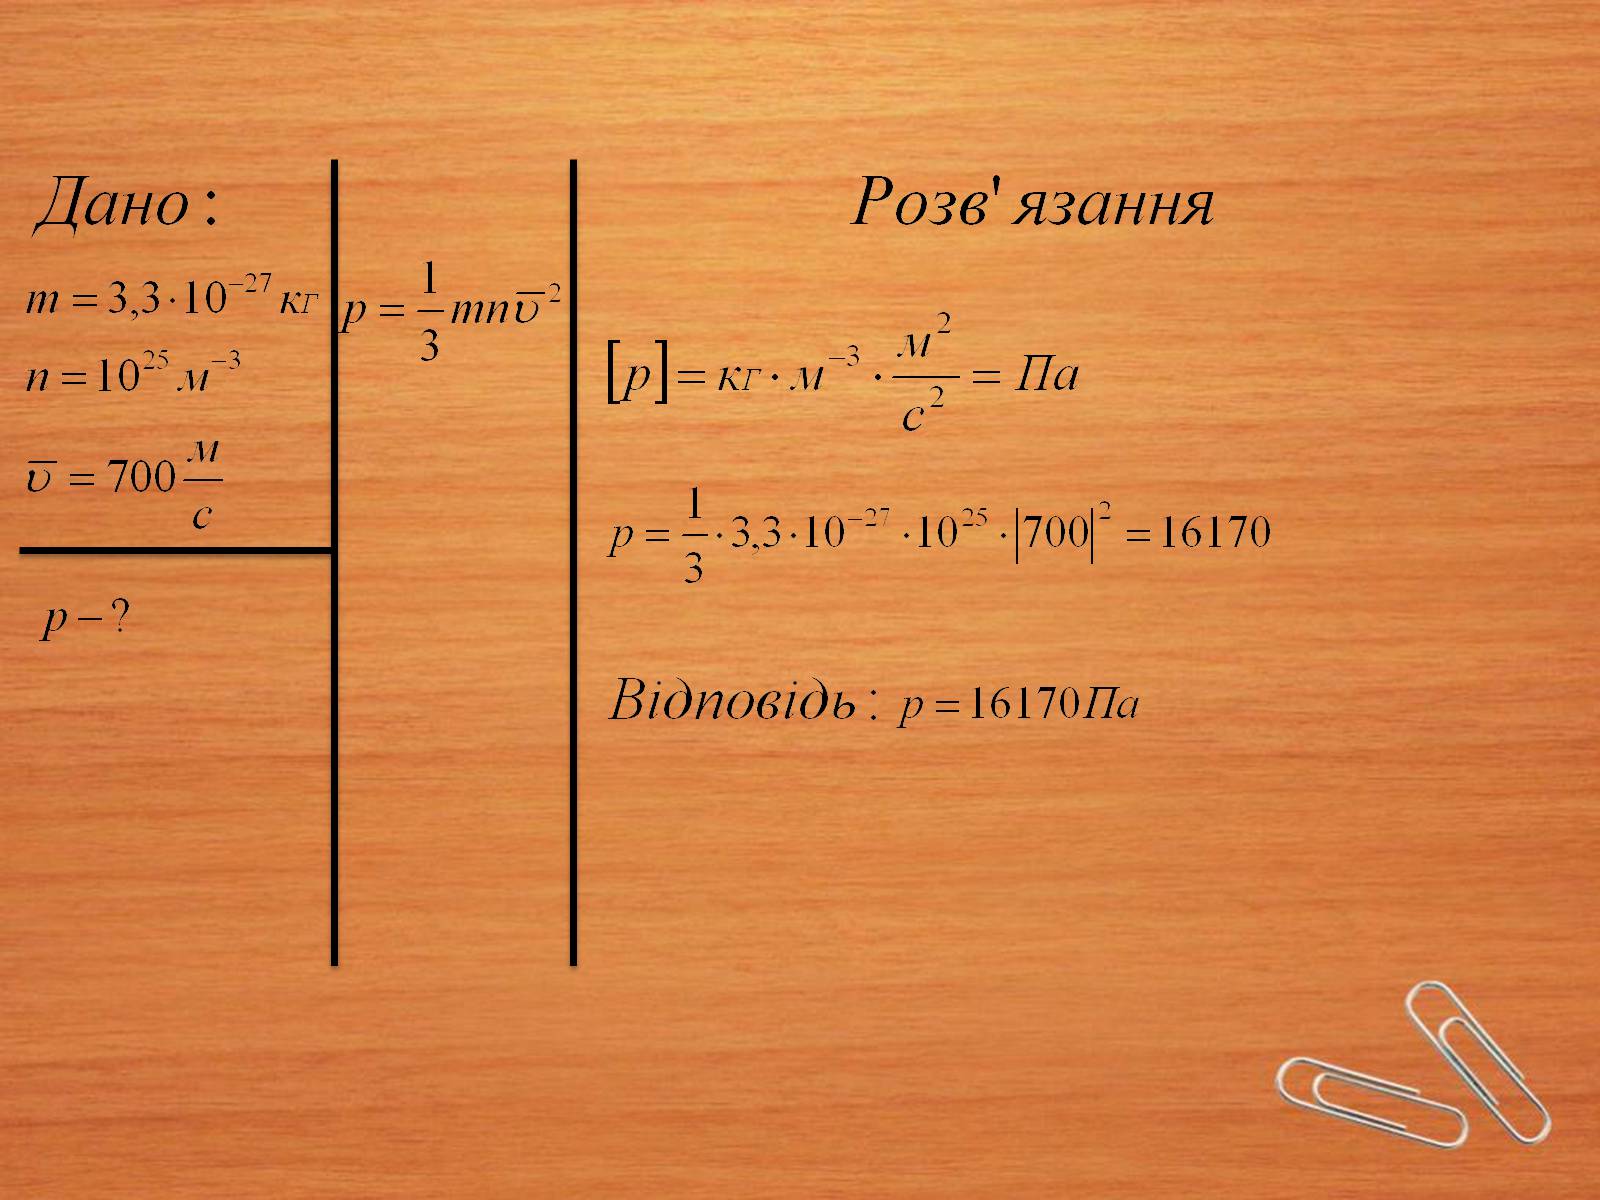 Дано:
m = 3,3·10⁻²⁷ кг
n = 10²⁵ м⁻³
ῡ = 700 м/с
p − ?
p = 1/3 mnῡ²
Розв'язання
[p] = кг · м⁻³ · м²/с² = Па
p = 1/3 · 3,3 · 10⁻²⁷ · 10²⁵ · |700|² = 16170
Відповідь: p = 16170Па